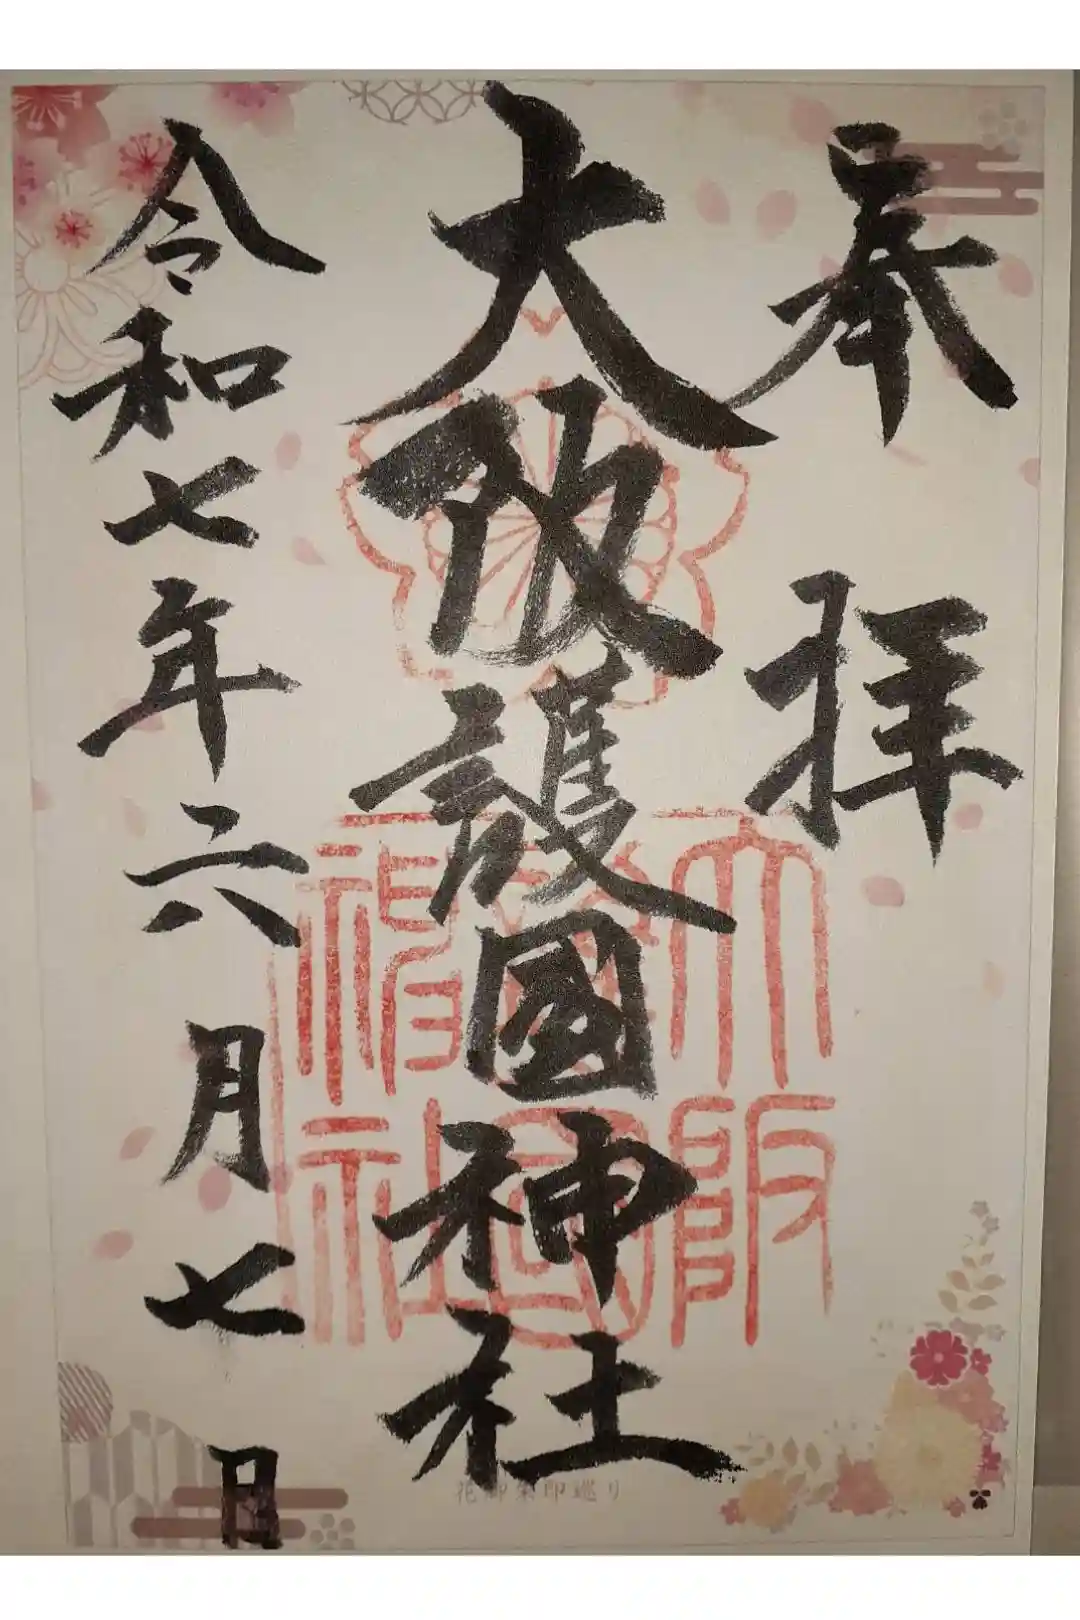 奉拝
大阪護國神社
令和七年六月七日
花御朱印巡り
大阪護國神社